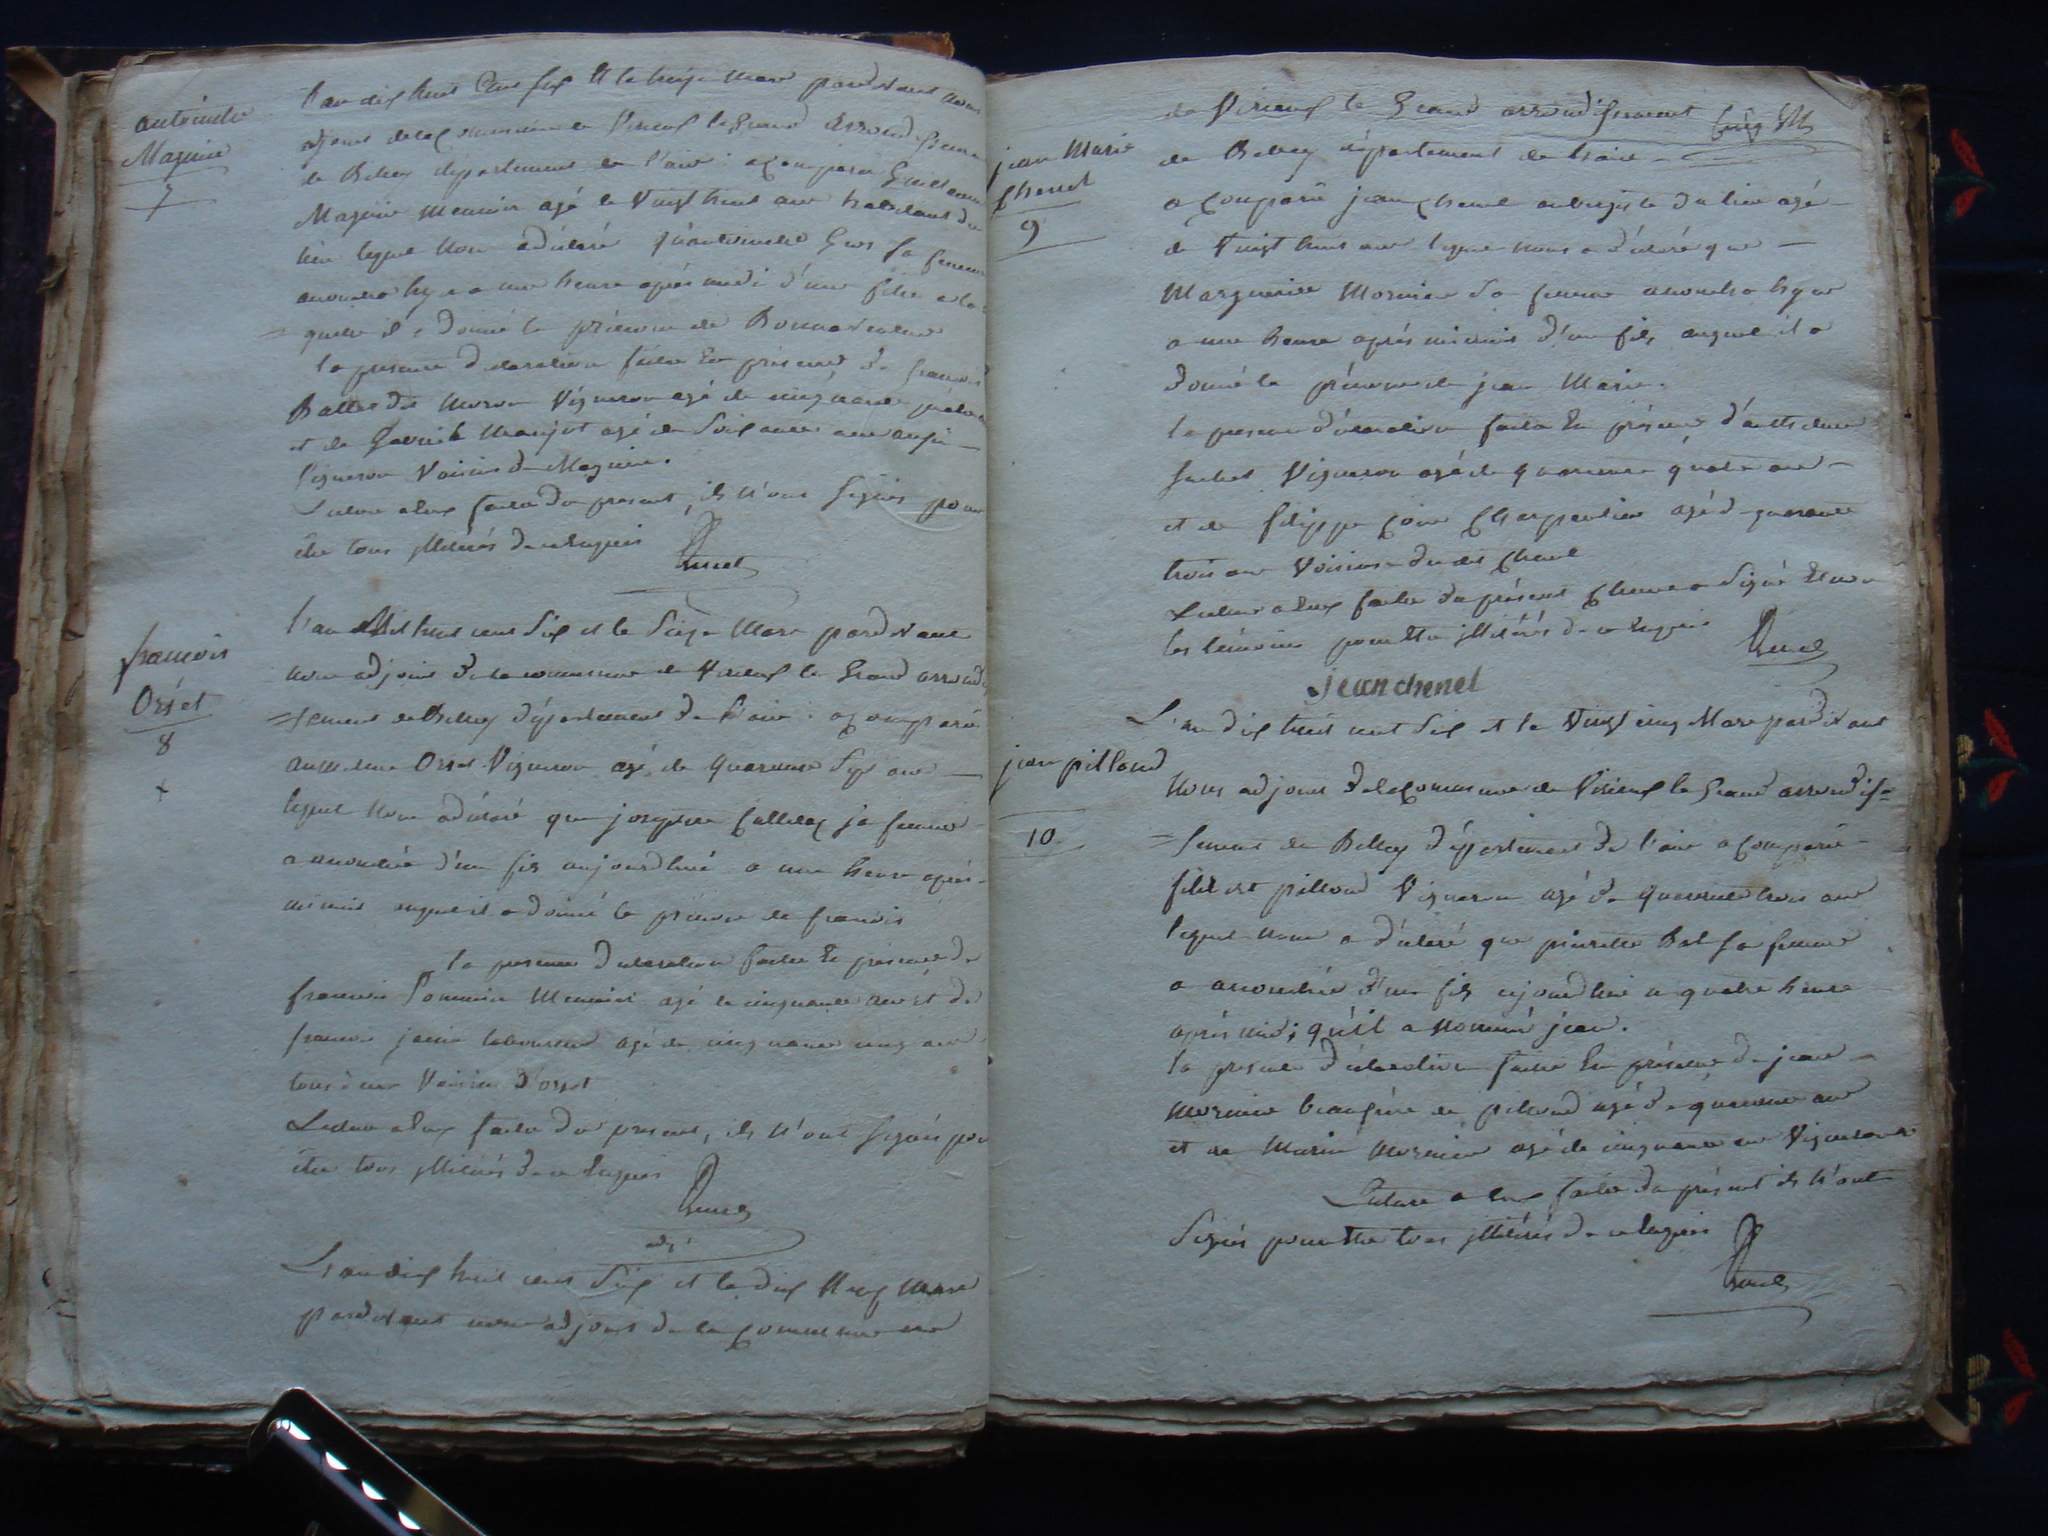 antoinette
Maznier
7
L'an dix huit Cens six et le treize mars pardevant nous
adjoint de la Commune de Virieux le Grand arrond
de Belley département de l'ain a comparu Guillaume
Maznier Meunier agé de Vingt huit ans habitant du
lieu lequel nous a déclaré qu'antoinette Gros sa femme
accoucha hyer a une heure après midi d'une fille a la
= quelle il a donné le prénom de
la presente declaration faite En présence de françois
Ballet dit Moron Vigneron agé de cinquante
et de Gabriel agé de Soixante ans aussi
Vigneron Voisins de Maznier.
Lecture a Eux faite du présent, ils n'ont Signés pour
être tous illiterés de ce Enquis
françois
Orset
8
+
L'an Mil huit cent Six et le Seize Mars pardevant
nous adjoint de la commune de Virieux le Grand arrondis
= sement de Belley département de l'ain a comparu
anthelme Orset Vigneron agé de quarante Six ans
lequel nous a déclaré que josephte sa femme
a accouchée d'un fils aujourd'hui a une heure après
minuit auquel il a donné le prénom de françois
la presente declaration faite En présence de
françois Meunier agé de cinquante ans et de
françois janin laboureur agé de cinquante cinq ans
tous deux Voisins d'orset
Lecture a Eux faite du present, ils n'ont Signés pour
être tous illiterés de ce Enquis
adj
L'an dix huit cent Six et le dix Neuf Mars
pardevant nous adjoint de la Commune de
de Virieux le Grand arrondissement
jean Marie
Chenel
9
de Belley département de l'ain
a Comparu jean Chenel aubergiste du lieu agé
de Vingt huit ans lequel nous a déclaré que
Marguerite Mornier Sa femme accoucha hyer
a une heure après minuit d'un fils auquel il a
donné le prénom de jean Marie.
la presente déclaration faite En présence d'anthelme
Vigneron agé de quarante quatre ans
et de filippe Charpentier agé de quarante
trois ans Voisins du dit Chenel
Lecture a Eux faite du présent Chenel a Signé Et non
les témoins pour Etre illiterés de ce Enquis
jean chenel
jean pilloud
10
L'an dix huit cent Six et le Vingt cinq Mars pardevant
nous adjoint de la Commune de Virieux le Grand arrondis=
= sement de Belley département de l'ain a comparu
filibert pilloud Vigneron agé de quarante trois ans
lequel nous a déclaré que pierrette Bal sa femme
a accouchée d'un fils aujourd'hui a quatre heure
après midi qu'il a Nommé jean.
la presente déclaration faite En présence de jean
Mornier beaufrère de pilloud agé de quarante ans
et de Marin Mornier agé de cinquante ans Vignerons
Lecture a Eux faite du présent ils n'ont
Signés pour Etre tous illiterés de ce Enquis